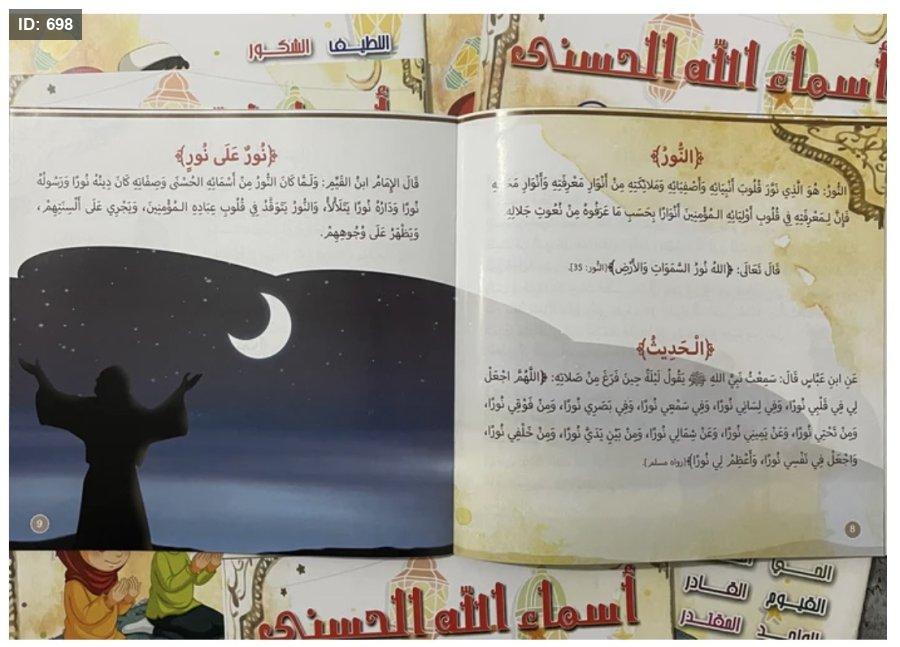 ID: 698
اللطيف الشكور
أسماء الله الحسنى
﴿النُّورُ﴾
النُّورُ: هُوَ الَّذِي نَوَّرَ قُلُوبَ أَنْبِيَائِهِ وَأَصْفِيَائِهِ وَمَلَائِكَتِهِ مِنْ أَنْوَارِ مَعْرِفَتِهِ وَأَنْوَارِ
فَإِنَّ لِمَعْرِفَتِهِ فِي قُلُوبِ أَوْلِيَائِهِ الـمُؤْمِنِينَ أَنْوَارًا بِحَسَبِ مَا عَرَفُوهُ مِنْ نُعُوتِ جَلَالِهِ
قَالَ تَعَالَى: ﴿اللهُ نُورُ السَّمَوَاتِ وَالأَرْضِ﴾[النُّور: 35].
﴿الْـحَدِيثُ﴾
عَنِ ابنِ عَبَّاسٍ قَالَ: سَمِعْتُ نَبِيَّ اللهِ ﷺ يَقُولُ لَيْلَةً حِينَ فَرَغَ مِنْ صَلَاتِهِ: ﴿اللَّهُمَّ اجْعَلْ
لِي فِي قَلْبِي نُورًا، وَفِي لِسَانِي نُورًا، وَفِي سَمْعِي نُورًا، وَفِي بَصَرِي نُورًا، وَمِنْ فَوْقِي نُورًا،
وَمِنْ تَحْتِي نُورًا، وَعَنْ يَمِينِي نُورًا، وَعَنْ شِمَالِي نُورًا، وَمِنْ بَيْنِ يَدَيَّ نُورًا، وَمِنْ خَلْفِي نُورًا،
وَاجْعَلْ فِي نَفْسِي نُورًا، وَأَعْظِمْ لِي نُورًا﴾[رواه مسلم].
8
﴿نُورٌ عَلَى نُورٍ﴾
قَالَ الإِمَامُ ابنُ القَيِّمِ: وَلَـمَّا كَانَ النُّورُ مِنْ أَسْمَائِهِ الحُسْنَى وَصِفَاتِهِ كَانَ دِينُهُ نُورًا وَرَسُولُهُ
نُورًا وَدَارُهُ نُورًا يَتَلَأْلَأُ، وَالنُّورُ يَتَوَقَّدُ فِي قُلُوبِ عِبَادِهِ الـمُؤْمِنِينَ، وَيَجْرِي عَلَى أَلْسِنَتِهِمْ،
وَيَظْهَرُ عَلَى وُجُوهِهِمْ.
9
أسماء الله الحسنى
القادر
القيوم
المقتدر
الواحد